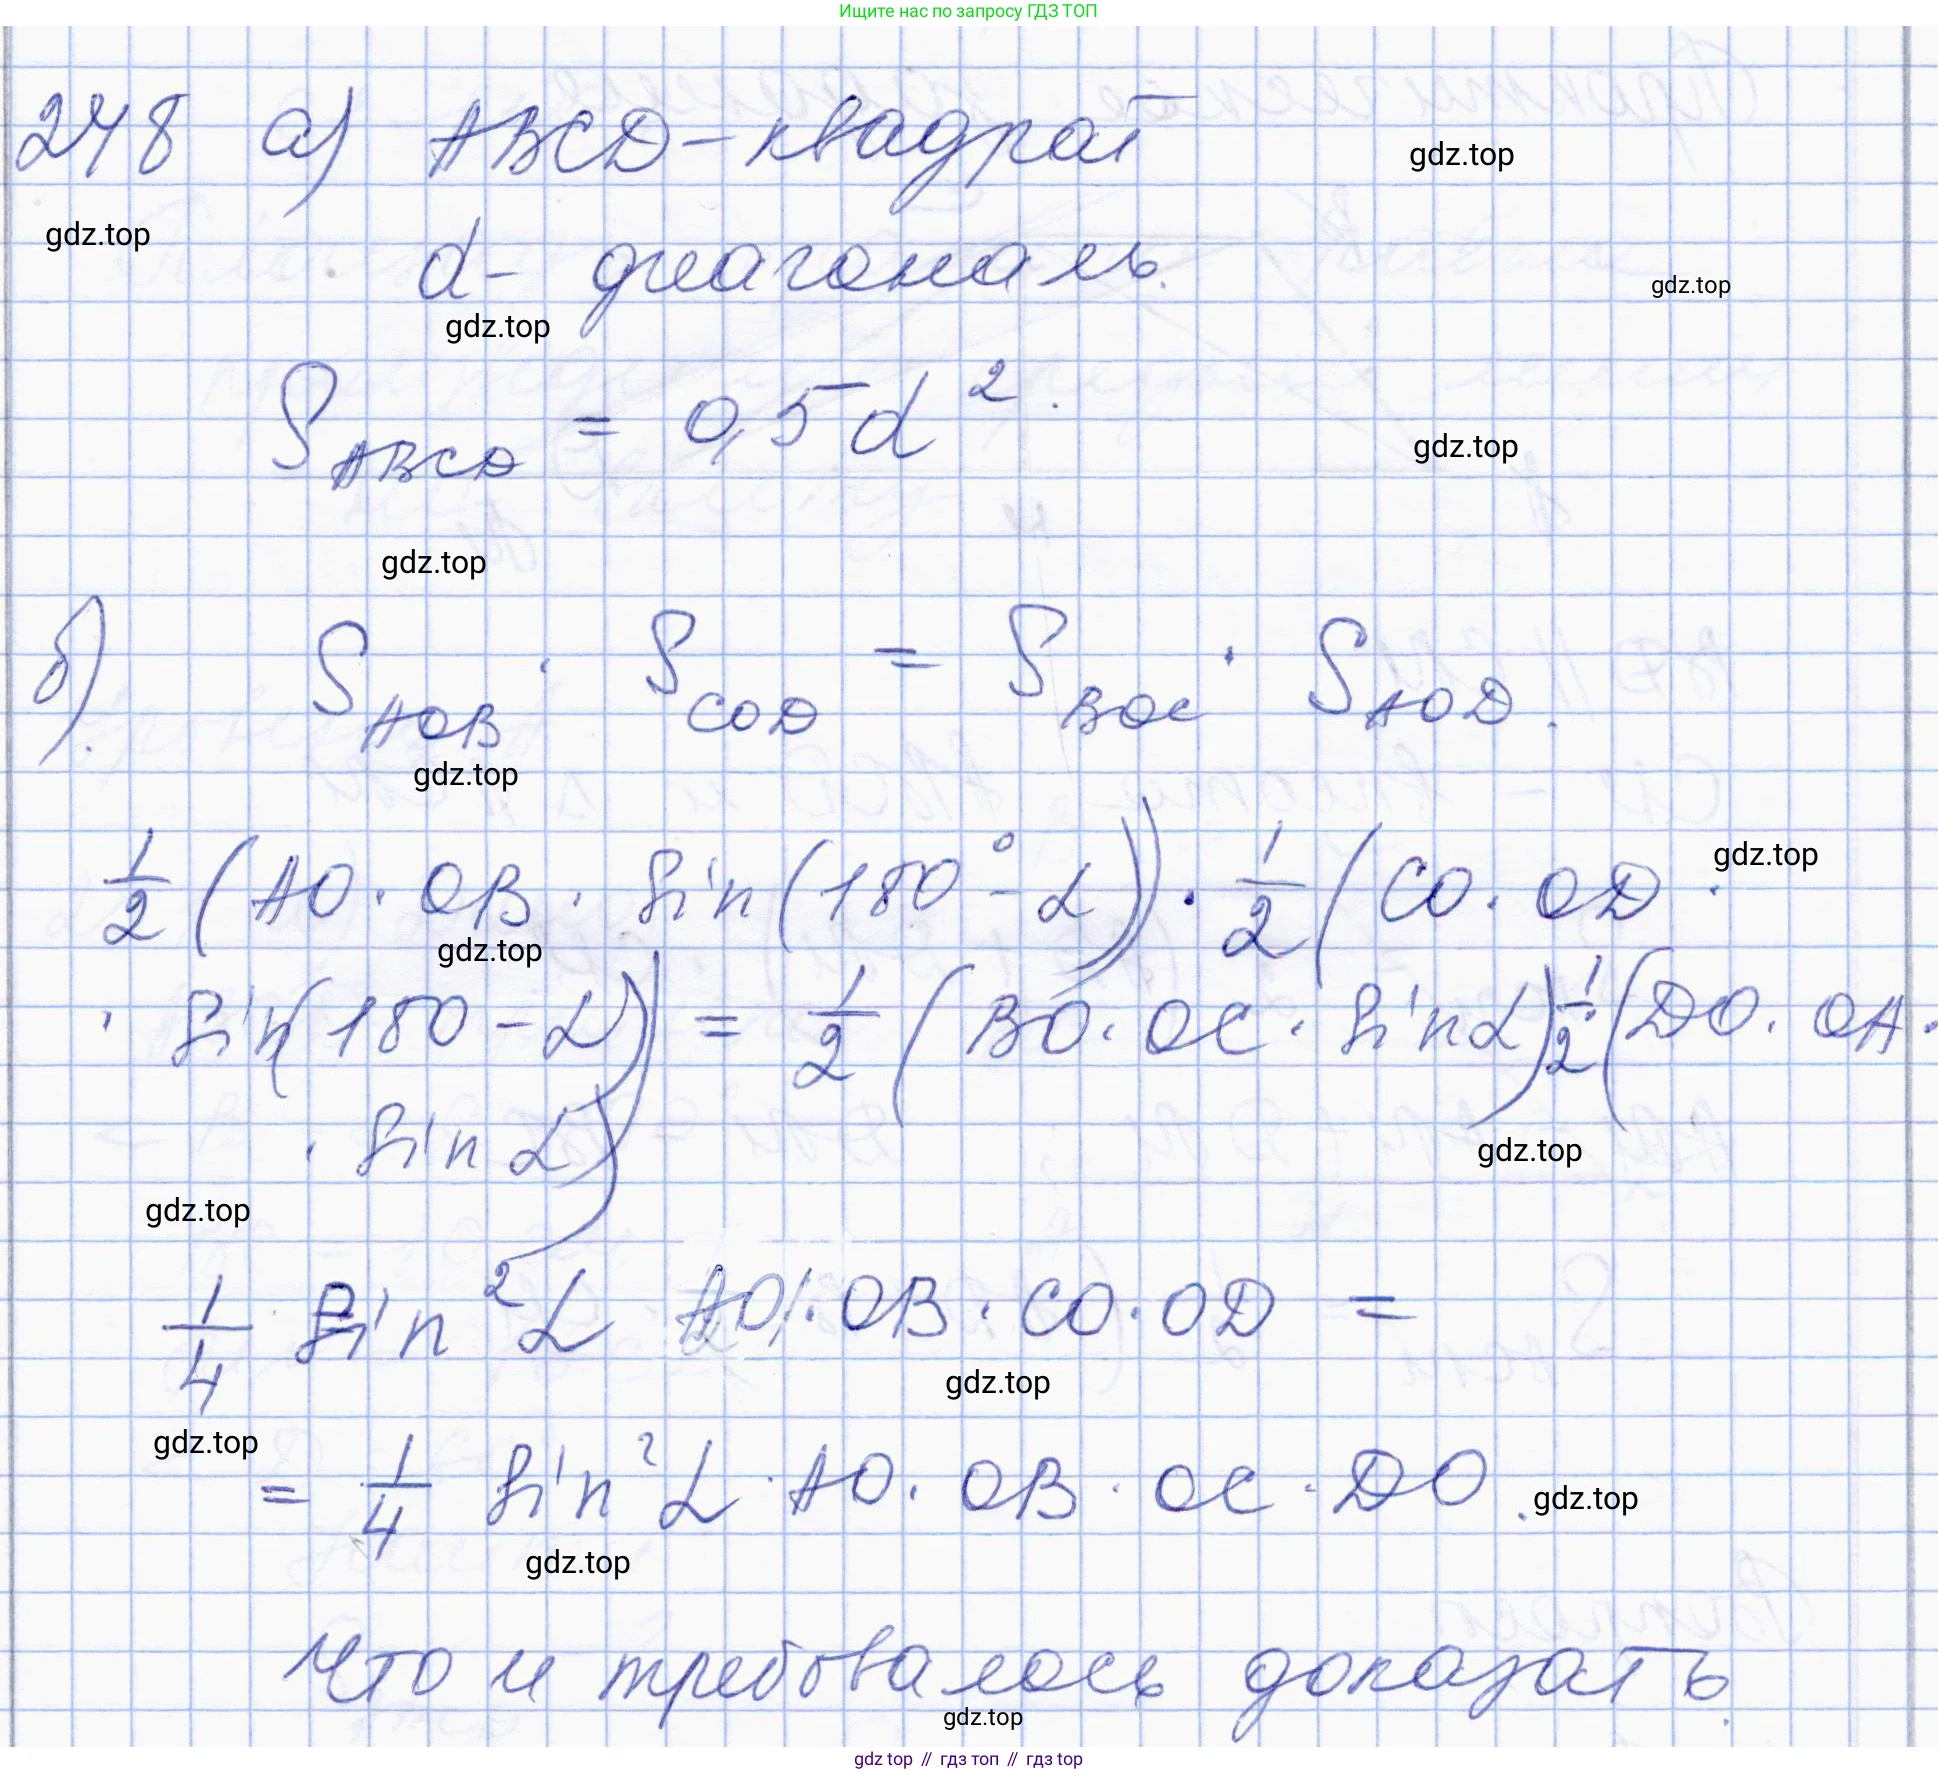 Ищите нас по запросу ГДЗ ТОП
248 а) ABCD - квадрат
gdz.top
gdz.top
d - диагональ.
gdz.top
gdz.top
S_ABCD = 0,5 d².
gdz.top
gdz.top
б). S_AOB · S_COD = S_BOC · S_AOD.
gdz.top
1/2 (AO · OB · sin(180° - α)) · 1/2 (CO · OD ·
gdz.top
gdz.top
· sin(180 - α)) = 1/2 (BO · OC · sin α) 1/2 · (DO · OA ·
· sin α)
gdz.top
gdz.top
1/4 sin² α AO · OB · CO · OD =
gdz.top
gdz.top
= 1/4 sin² α · AO · OB · OC · DO.
gdz.top
gdz.top
Что и требовалось доказать.
gdz.top
gdz top // гдз топ // гдз top